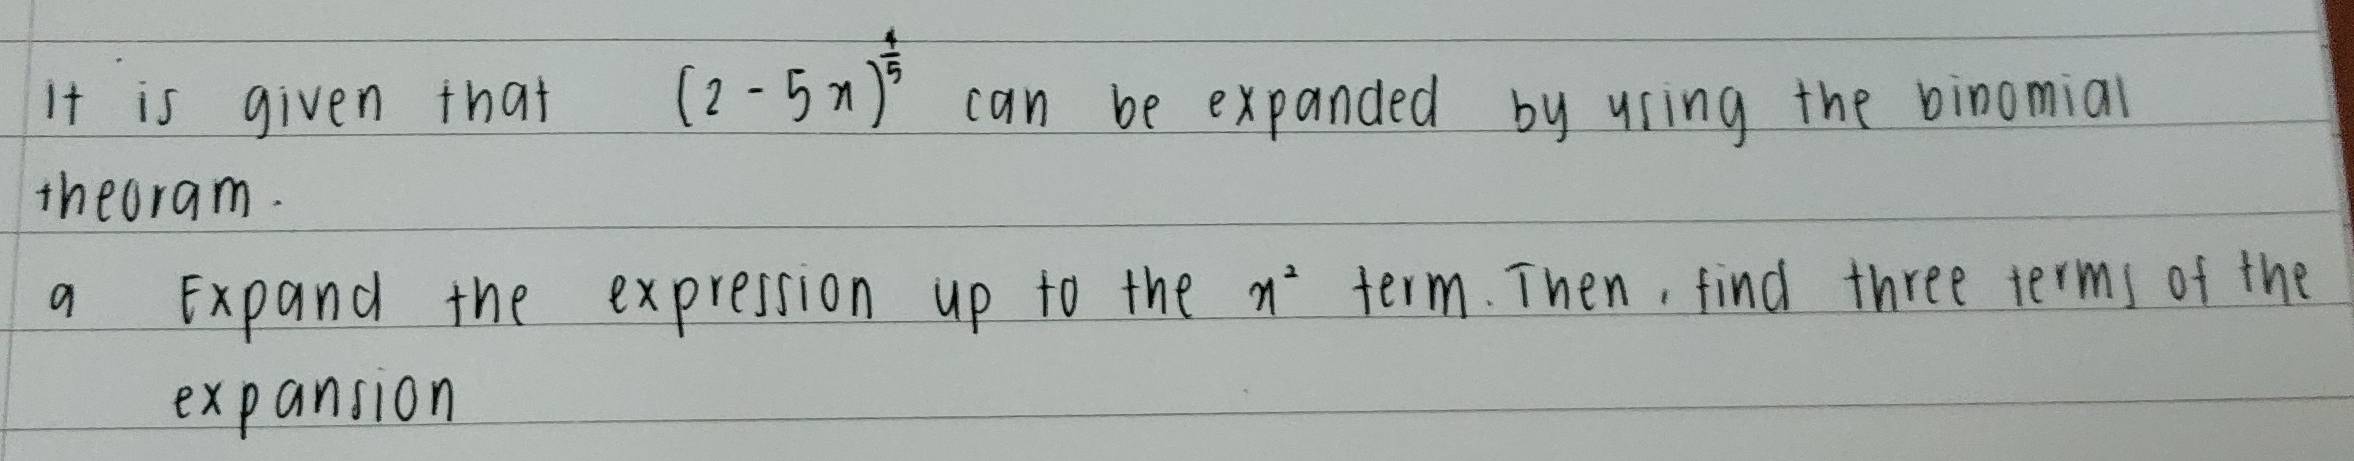 It is given that (2 - 5x)^(4/5) can be expanded by using the binomial
theoram.
a Expand the expression up to the x² term. Then, find three terms of the
expansion